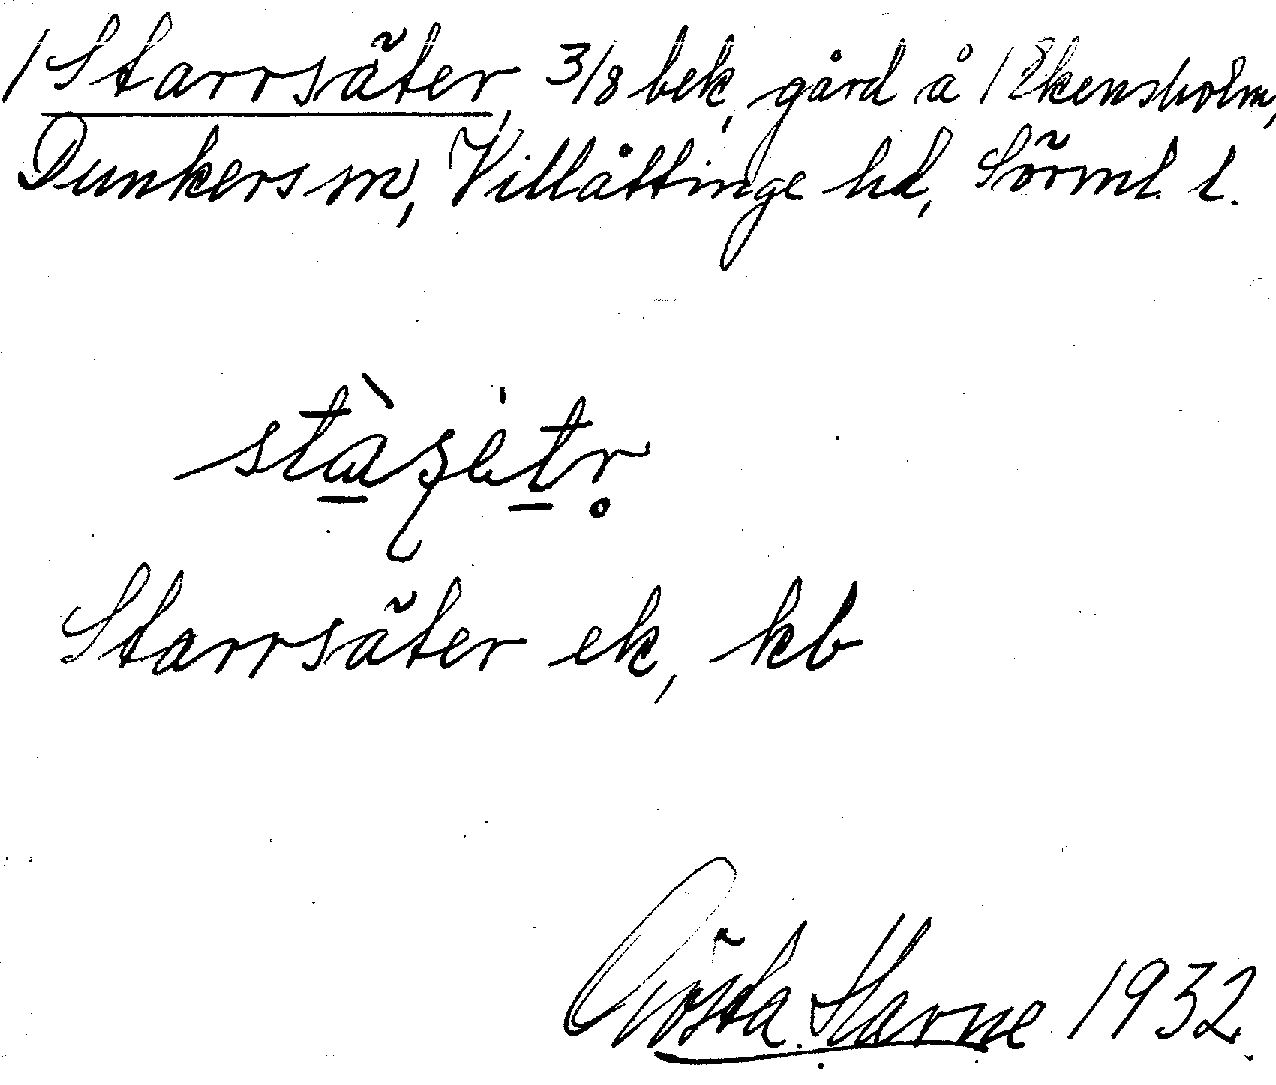 1 Starrsäter, 3/8 bek, gård å 1 Ekensholm,
Dunkers sn, Villåttinge hd, Sörml. l.
stàṣètr̥
Starrsäter ek, kb
Gösta Harne 1932.